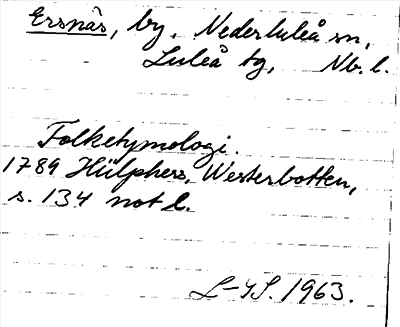 Ersnäs, by. Nederluleå sn,
Luleå tg, Nb. l.
Folketymologi.
1789 Hülphers, Westerbotten,
s. 134 not l.
L-GS. 1963.